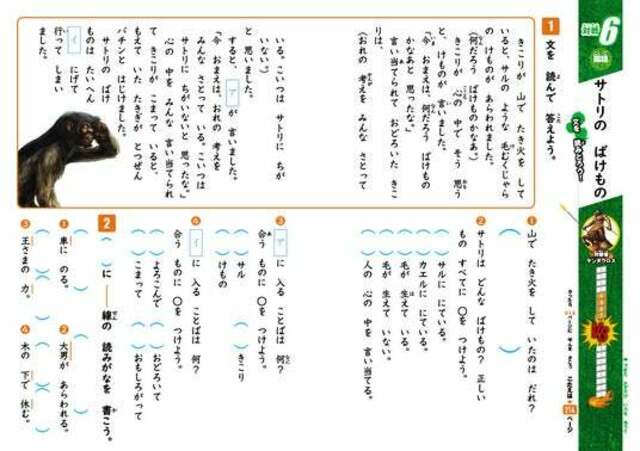 対戦
6
国語
サトリの ばけもの
文を 読みとろう！
ケンタウロス
ページ
1
文を 読んで 答えよう。
きこりが 山で たき火を して
いると、サルの ような 毛むくじゃら
の けものが あらわれました。
（何だろう ばけものかなあ。）
きこりが 心の 中で そう 思う
と、けものが 言いました。
「今 おまえは、何だろう ばけもの
かなあと 思ったな。」
言い当てられて おどろいた きこ
りは、
（おれの 考えを みんな さとって
いる。こいつは サトリに ちが
いない）
と 思いました。
すると、 ア が 言いました。
「今 おまえは、おれの 考えを
みんな さとって いる。こいつは
サトリに ちがいないと 思ったな。」
心の 中を みんな 言い当てられ
て きこりが こまって いると、
もえて いた たきぎが とつぜん
パチンと はじけました。
サトリの ばけ
ものは たいへん
イ にげて
行って しまい
ました。
① 山で たき火を して いたのは だれ？
② サトリは どんな ばけもの？ 正しい
もの すべてに ○を つけよう。
（ ）サルに にている。
（ ）カエルに にている。
（ ）毛が 生えて いる。
（ ）毛が 生えて いない。
（ ）人の 心の 中を 言い当てる。
③ ア に 入る ことばは 何？
合う ものに ○を つけよう。
（ ）サル （ ）きこり
（ ）けもの
④ イ に 入る ことばは 何？
合う ものに ○を つけよう。
（ ）よろこんで （ ）おどろいて
（ ）こまって （ ）おもしろがって
2
（ ）に ――線の 読みがなを 書こう。
① 車に のる。
② 大男が あらわれる。
③ 王さまの 力。
④ 木の 下で 休む。